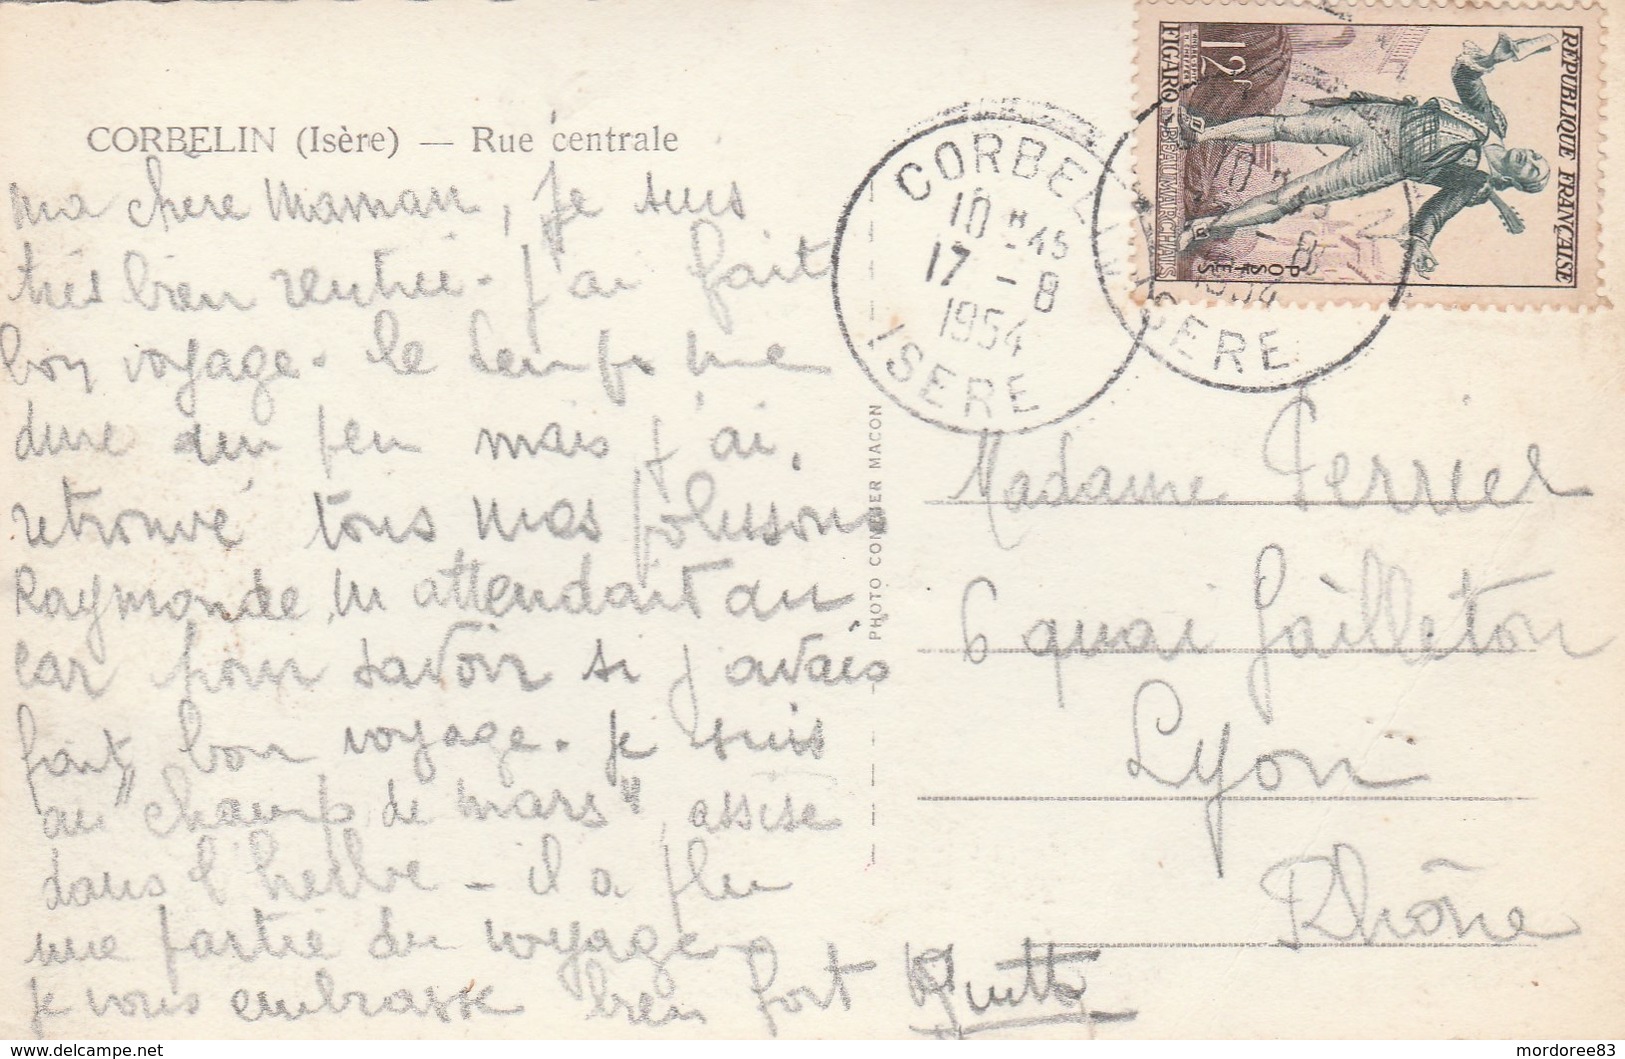 CORBELIN (Isère) — Rue centrale
ma chère Maman, je suis
très bien rentrée - j'ai fait
bon voyage. le temps me
dure un peu mais j'ai
retrouvé tous mes polissons
Raymonde m'attendait au
car pour savoir si j'avais
fait bon voyage. je suis
au "champ de mars" assise
dans l'herbe - il a plu
une partie du voyage
je vous embrasse bien fort
PHOTO COMBIER MACON
CORBELIN
10 H45
17 - 8
1954
ISERE
CORBELIN
10 H45
17 - 8
1954
ISERE
REPUBLIQUE FRANÇAISE
POSTES
12f
FIGARO DE BEAUMARCHAIS
Madame Perrier
6 quai Gailleton
Lyon
Rhône
www.delcampe.net
mordoree83